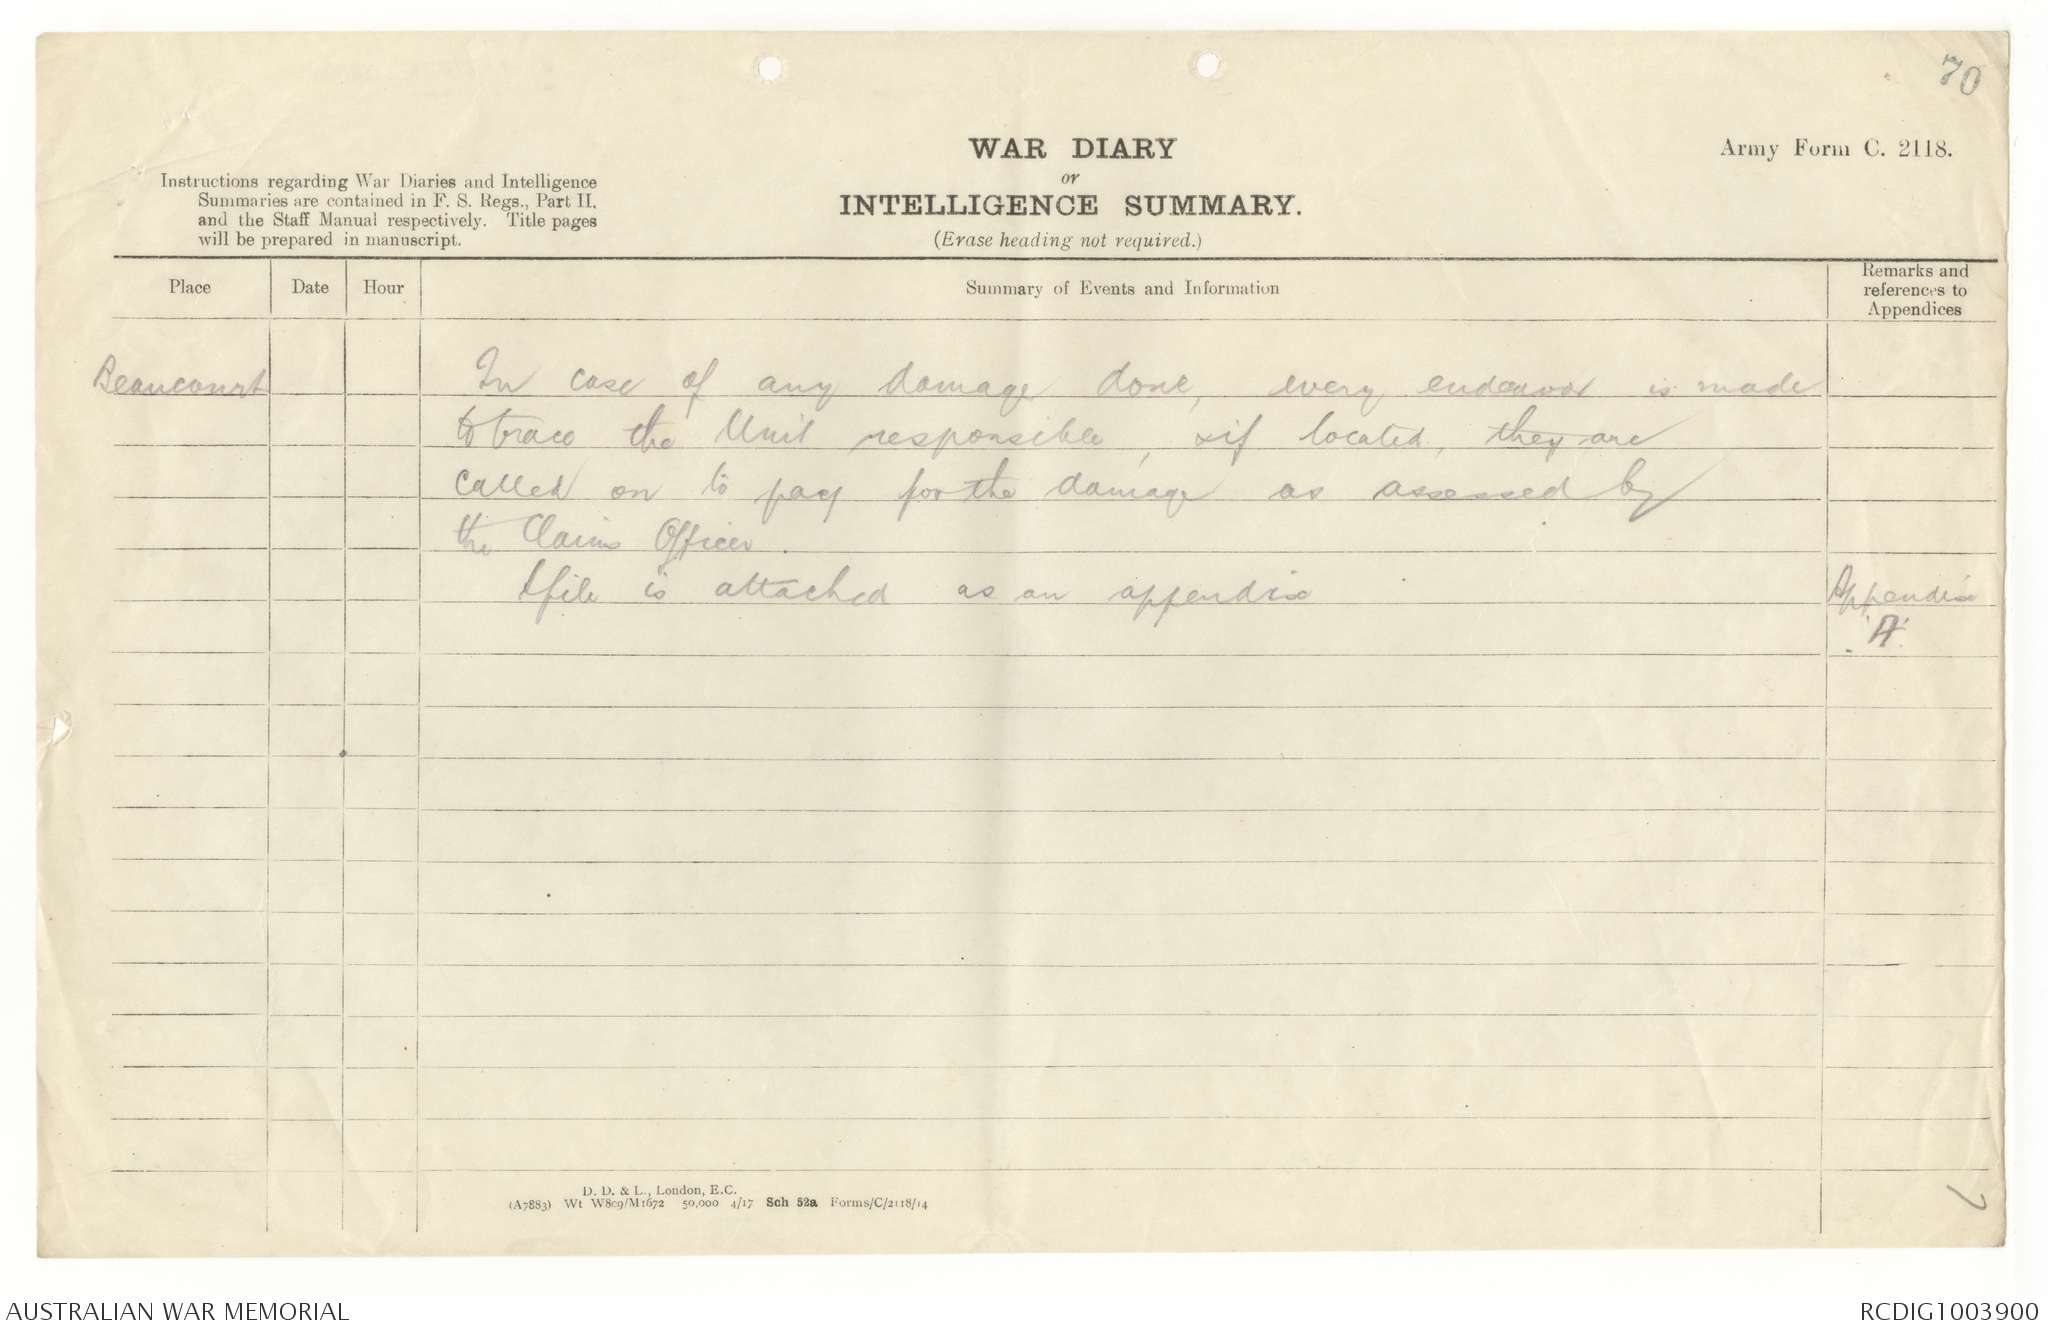 70
WAR DIARY
or
INTELLIGENCE SUMMARY.
(Erase heading not required.)
Army Form C. 2118.
Instructions regarding War Diaries and Intelligence
Summaries are contained in F. S. Regs., Part II.
and the Staff Manual respectively. Title pages
will be prepared in manuscript.
Place
Date
Hour
Summary of Events and Information
Remarks and
references to
Appendices
Beaucourt
In case of any damage done, every endeavor is made
to trace the Unit responsible, & if located, they are
called on to pay for the damage as assessed by
the Claims Officer.
A file is attached as an appendix
Appendix
"A"
D. D. & L., London, E.C.
(A7883) Wt W809/M1672 50,000 4/17 Sch 52a Forms/C/2118/14
7
AUSTRALIAN WAR MEMORIAL
RCDIG1003900